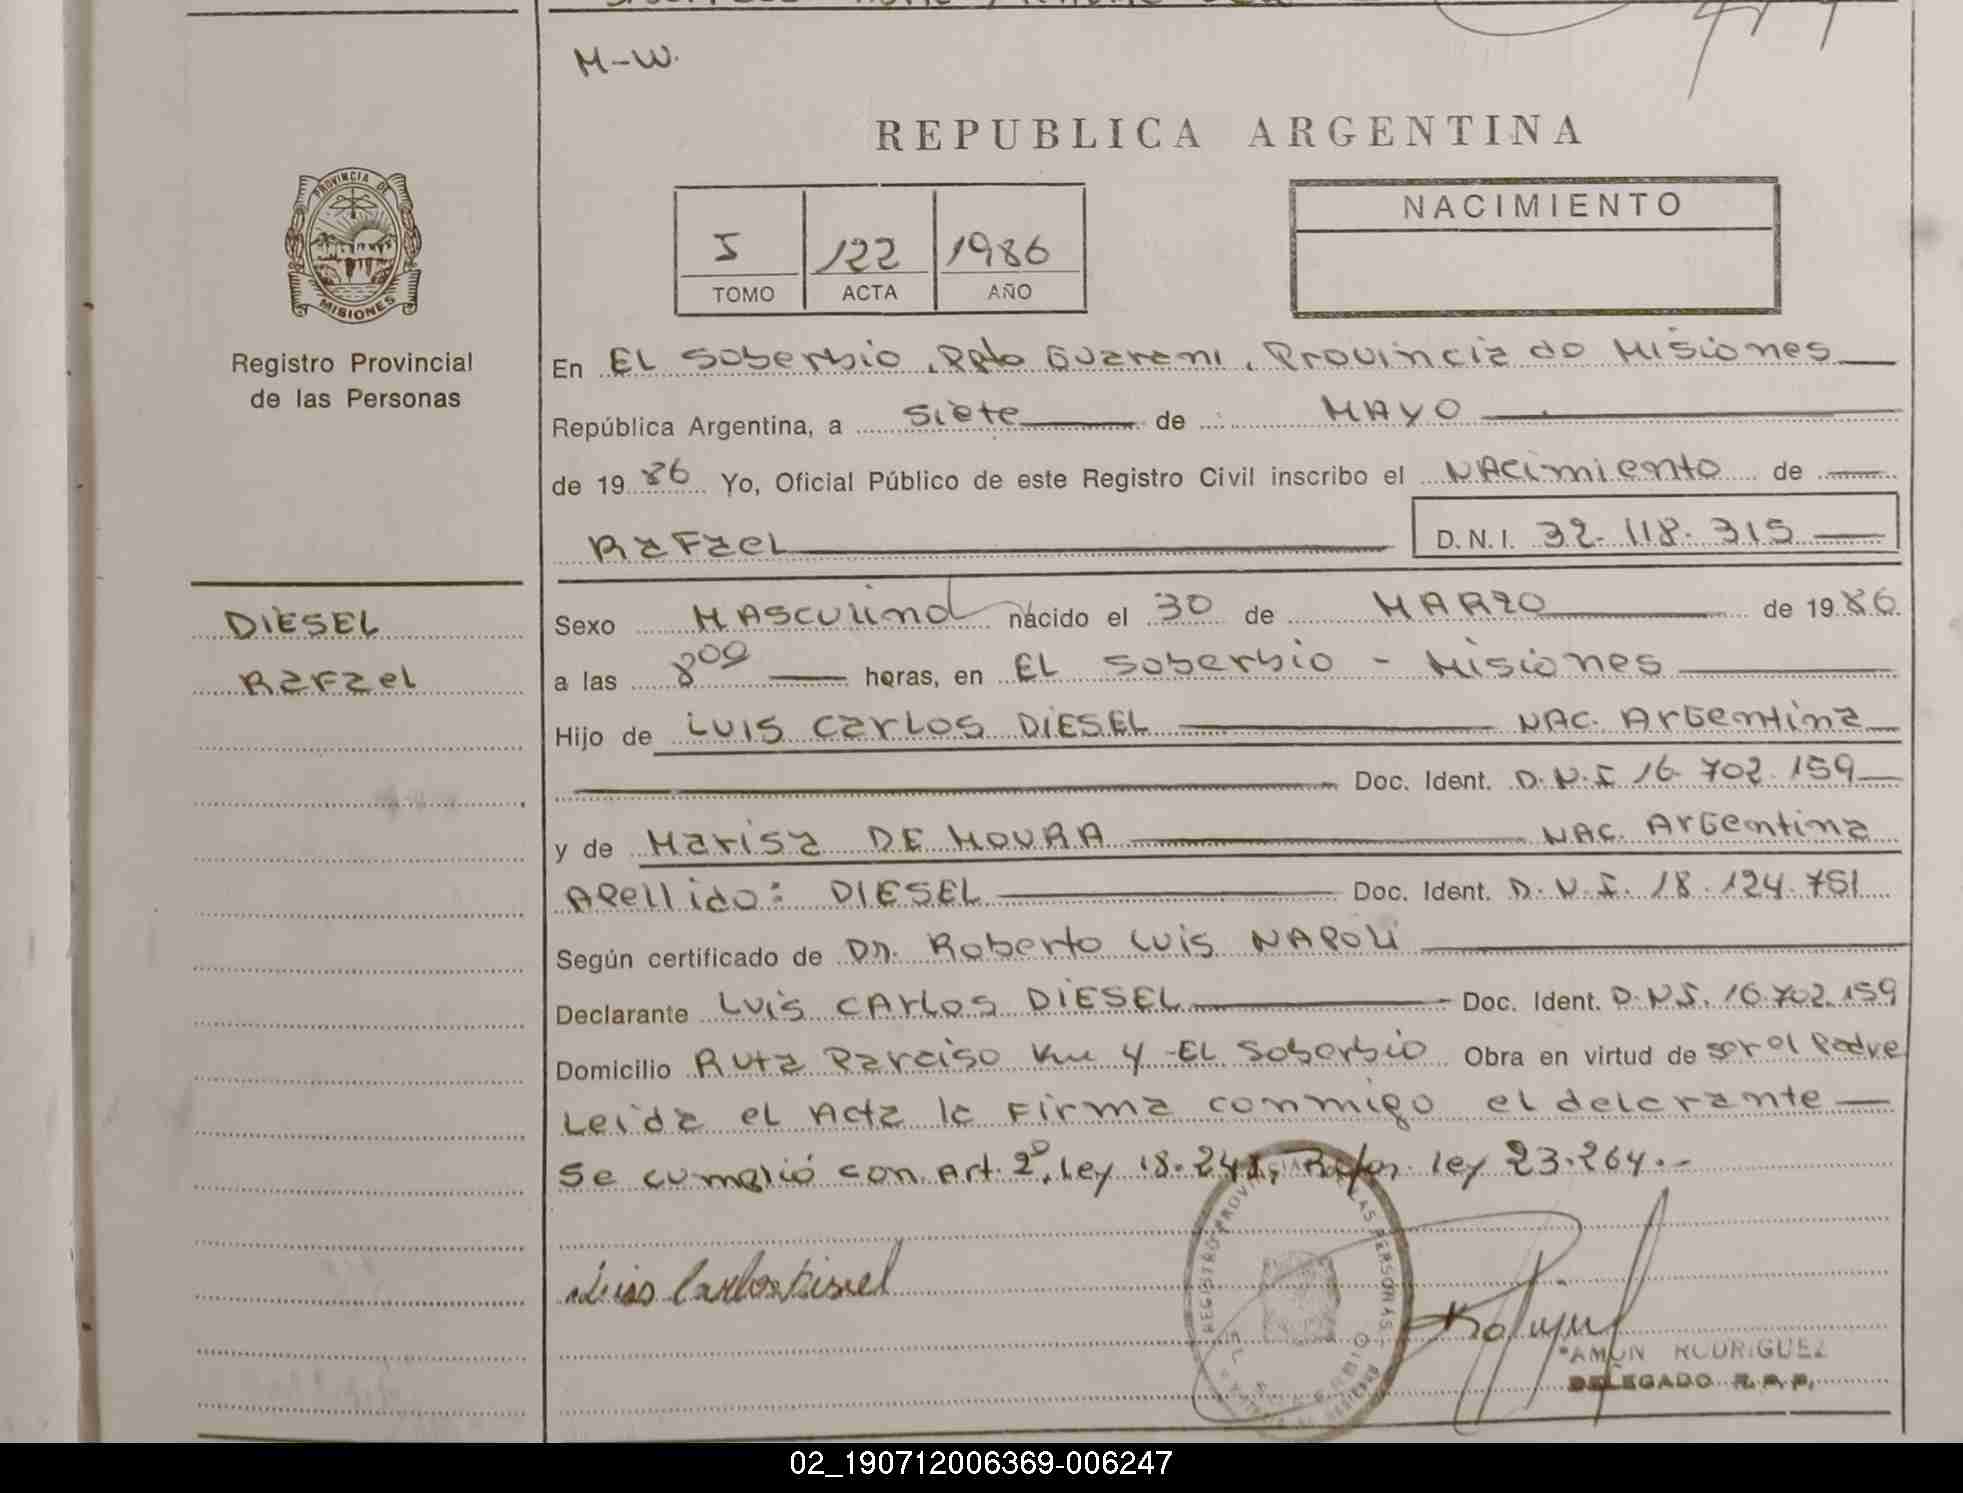 M-W.
REPUBLICA ARGENTINA
PROVINCIA DE
MISIONES
Registro Provincial
de las Personas
I 122 1986
TOMO ACTA AÑO
NACIMIENTO
En EL Soberbio, Guarani, Provincia de Misiones
República Argentina, a siete de MAYO
de 1986 Yo, Oficial Público de este Registro Civil inscribo el NACimiento de
RaFael D.N.I. 32.118.315
DIESEL
RaFael
Sexo MASCulino nácido el 30 de MARZO de 1986.
a las 8 00 horas, en EL Soberbio - Misiones
Hijo de LUIS CarLos DIESEL NAC. ArGentina
Doc. Ident. D.N.I 16.702.159
y de Marisa DE MOURA NAC. ArGentina
APellido: DIESEL Doc. Ident. D.N.I. 18.124.751
Según certificado de Dr. Roberto Luis NAPOLI
Declarante Luis CArLos DIESEL Doc. Ident. D.N.I. 16.702.159
Domicilio Ruta Paraiso Km 4 - EL Soberbio Obra en virtud de ser el Padre
Leida el Acta la Firma conmigo el delcrante
Se cumplió con Art. 2º, Ley 18.248, Refor. ley 23.264.-
Luis Carlos Diesel
REGISTRO PERSONAS
AMON RODRIGUEZ
DELEGADO R.P.P.
02_190712006369-006247